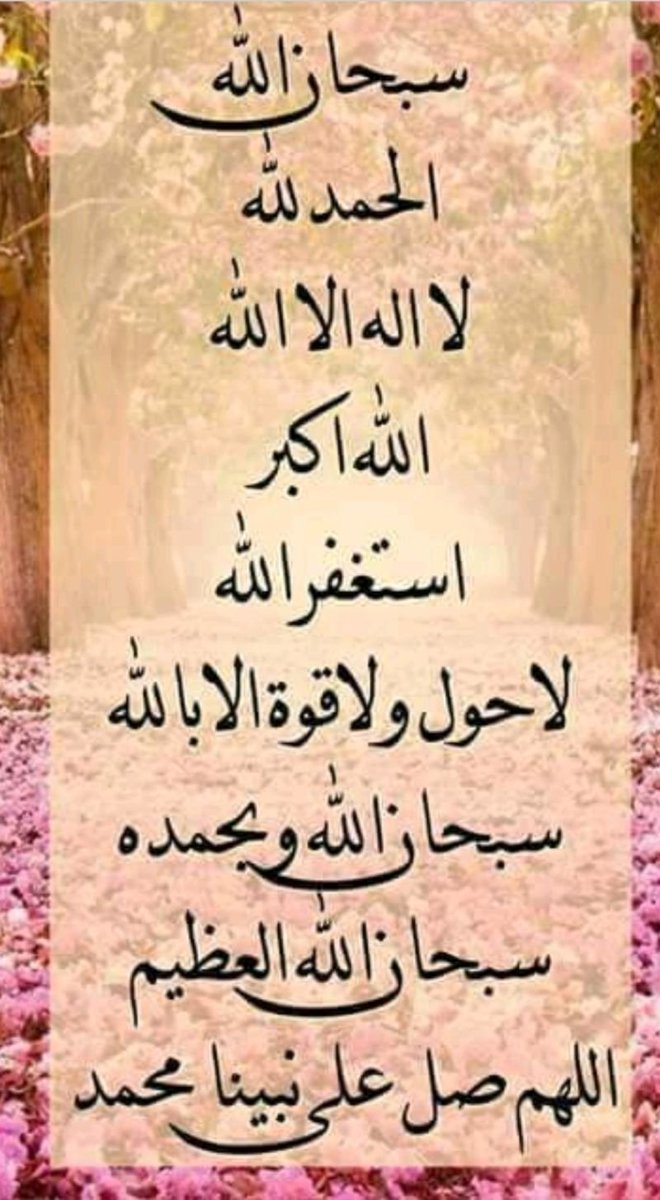 سبحان الله
الحمد لله
لا اله الا الله
الله اكبر
استغفر الله
لا حول ولا قوة الا بالله
سبحان الله وبحمده
سبحان الله العظيم
اللهم صل على نبينا محمد